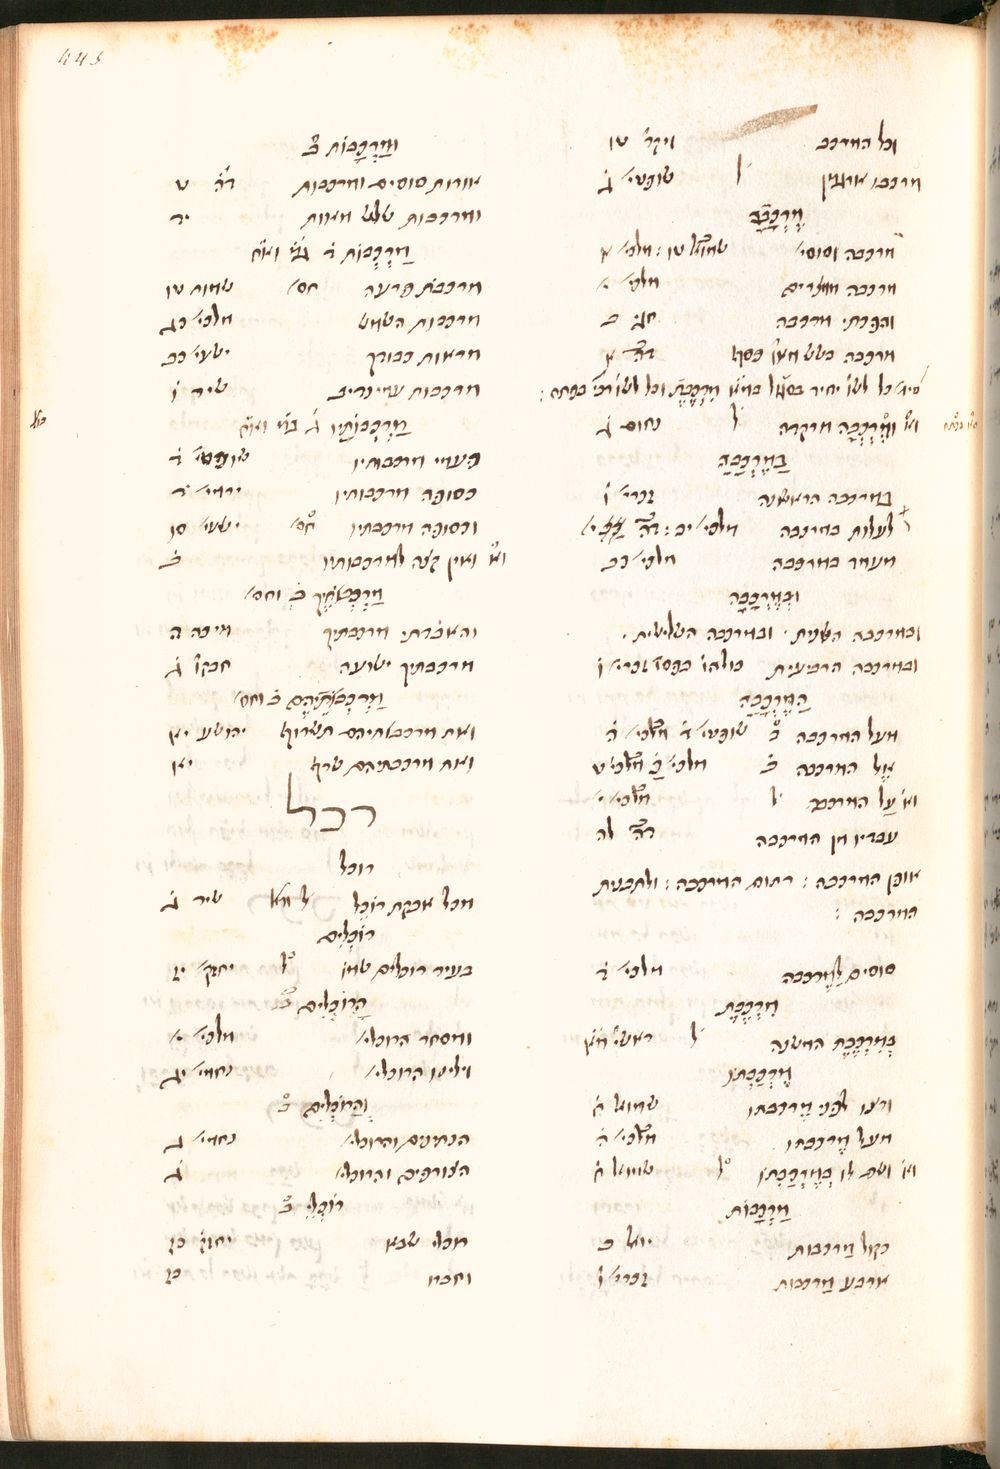 445
וכל המרכב ויקר׳ טו
מרכבו ארגמן ל׳ שיר ג
מֶרְכָּבָה
מרכבה וסוסי׳ שמואל טו : מלכי׳ א
מרכבה ממצרים מלכי׳ י
והפכתי מרכבה חגי ב
מרכבה בשש מאו׳ כסף דה׳ א
מרקדה ל׳ נחום ג
בַּמֶּרְכָּבָה
במרכבה הראשנה זכרי׳ ו
לעלות במרכבה מלכי׳ יב : דה׳ י
מעמד במרכבה מלכי׳ כב
וּבַמֶּרְכָּבָה
ובמרכבה השנית · ובמרכבה השלישית ·
ובמרכבה הרביעית זכרי׳ ו
הַמֶּרְכָּבָה
מעל המרכבה שופטי׳ ד מלכי׳ ה
אל המרכבה ב מלכי׳ מלכי׳ ט
על המרכבה ל׳ מלכי׳ י
עבדיו מן המרכבה דה׳ לה
אופן המרכבה : רתום המרכבה : ולתבנית
המרכבה :
סוסים למרכבה מלכי׳ ד
מִרְכֶּבֶת
בְּמִרְכֶּבֶת המשנה ל׳ ראשי׳ מא
מֶרְכַּבְתּוֹ
ורצו לפני מרכבתו שמואל ח
מעל מרכבתו מלכי׳ ה
ושם לו בְּמֶרְכַּבְתּוֹ ל׳ שמואל ח
מַרְכָּבוֹת
כקול מרכבות יואל ב
ארבע מרכבות זכרי׳ ו
וּמַרְכָּבוֹת ב׳
אורות סוסים ומרכבות דה׳ ט
ומרכבות שלש מאות יד
מַרְכְּבוֹת ד
מרכבת פרעה חס׳ שמות טו
מרכבות השמש מלכי׳ כג
מרכבות כבודך ישעי׳ כב
מרכבות עמינדיב שיר ו
מַרְכְּבוֹתָיו ג
פעמי מרכבותיו שופטי׳ ד
כסופה מרכבותיו ירמי׳ ד
וכסופה מרכבתיו חס׳ ישעי׳ סו
ואין קצה למרכבותיו ב
מַרְכְּבֹתֶיךָ ב וחס׳
והאבדתי מרכבתיך מיכה ה
מרכבתיך ישועה חבקו׳ ג
מַרְכְּבֹתֵיהֶם ב וחס׳
ואת מרכבותיהם תשרוף יהושע יא
ואת מרכבתיהם שרף יא
רכל
רוכל
מכל אבקת רוכל ל׳ שיר ג
רוֹכְלִים
בעיר רוכלים שמו ל׳ יחזק׳ יז
הָרוֹכְלִים ב׳
ומסחר הרוכלי׳ מלכי׳ י
וילינו הרוכלי׳ נחמי׳ יג
וְהָרוֹכְלִים ב׳
הנתינים והרוכלי׳ נחמי׳ ג
הצורפים והרוכלי׳ ג
רוֹכְלֵי ב׳
רוכלי שבא יחזק׳ כז
וחברו כז